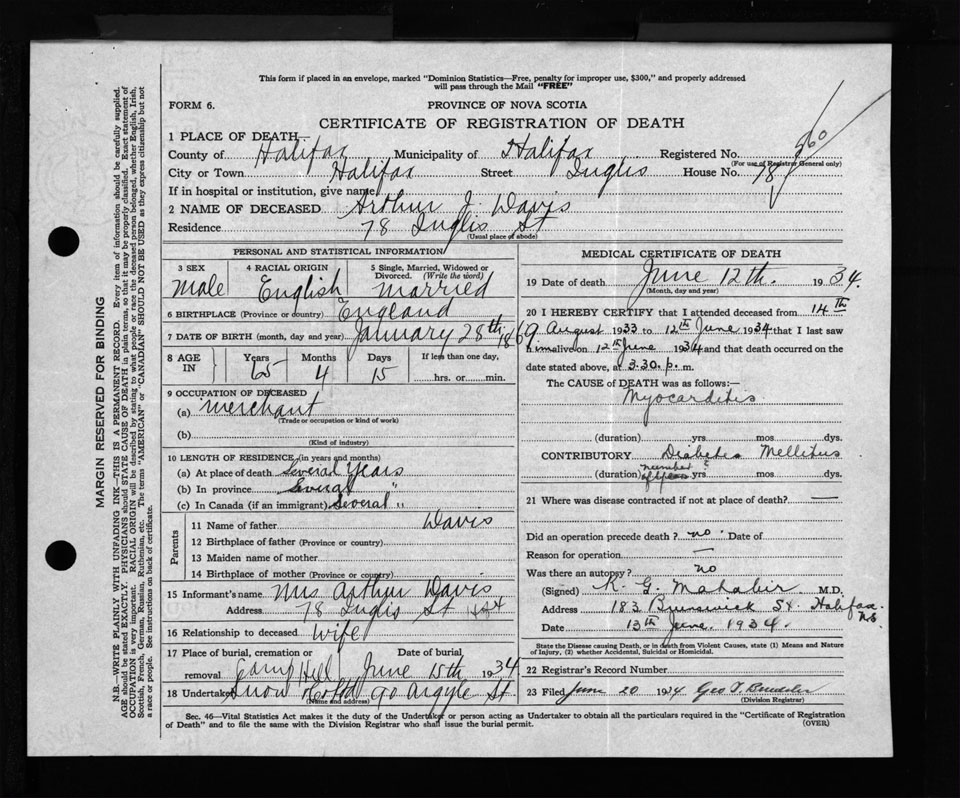 This form if placed in an envelope, marked "Dominion Statistics—Free, penalty for improper use, $300," and properly addressed
will pass through the Mail "FREE"
FORM 6.
PROVINCE OF NOVA SCOTIA
CERTIFICATE OF REGISTRATION OF DEATH
1 PLACE OF DEATH—
County of Halifax Municipality of Halifax Registered No. 960
(For use of Registrar General only)
City or Town Halifax Street Inglis House No. 78
If in hospital or institution, give name
2 NAME OF DECEASED Arthur J. Davis
Residence 78 Inglis St
(Usual place of abode)
PERSONAL AND STATISTICAL INFORMATION
3 SEX Male
4 RACIAL ORIGIN English
5 Single, Married, Widowed or Divorced. (Write the word) Married
6 BIRTHPLACE (Province or country) England
7 DATE OF BIRTH (month, day and year) January 28th 1869
8 AGE IN Years 65 Months 4 Days 15 If less than one day, hrs. or min.
9 OCCUPATION OF DECEASED
(a) Merchant
(Trade or occupation or kind of work)
(b)
(Kind of industry)
10 LENGTH OF RESIDENCE (in years and months)
(a) At place of death Several Years
(b) In province Several "
(c) In Canada (if an immigrant) Several "
Parents
11 Name of father Davis
12 Birthplace of father (Province or country)
13 Maiden name of mother
14 Birthplace of mother (Province or country)
15 Informant's name Mrs Arthur Davis
Address 78 Inglis St Hfx
16 Relationship to deceased Wife
17 Place of burial, cremation or removal Camp Hill
Date of burial June 15th 1934
18 Undertaker Snow 90 Argyle St
(Name and address)
MEDICAL CERTIFICATE OF DEATH
19 Date of death June 12th. 1934.
(Month, day and year)
20 I HEREBY CERTIFY that I attended deceased from 14th
August 1933 to 12th June 1934 that I last saw
him alive on 12th June 1934 and that death occurred on the
date stated above, at 3.30 p. m.
The CAUSE of DEATH was as follows:—
Myocarditis
(duration) yrs mos dys.
CONTRIBUTORY Diabetes Mellitus
(duration) number of years yrs mos. dys.
21 Where was disease contracted if not at place of death? —
Did an operation precede death? no. Date of
Reason for operation —
Was there an autopsy? no
(Signed) K. G. Mahabir M.D.
Address 183 Brunswick St. Halifax N.S.
Date 13th June. 1934.
State the Disease causing Death, or in death from Violent Causes, state (1) Means and Nature
of Injury, (2) whether Accidental, Suicidal or Homicidal.
22 Registrar's Record Number
23 Filed June 20 1934 Geo T.
(Division Registrar)
Sec. 46—Vital Statistics Act makes it the duty of the Undertaker or person acting as Undertaker to obtain all the particulars required in the "Certificate of Registration
of Death" and to file the same with the Division Registrar who shall issue the burial permit.
(OVER)
MARGIN RESERVED FOR BINDING
N.B.—WRITE PLAINLY WITH UNFADING INK—THIS IS A PERMANENT RECORD. Every item of information should be carefully supplied.
AGE should be stated EXACTLY. PHYSICIANS should STATE CAUSE OF DEATH in plain terms, so that it may be properly classified. Exact statement of
OCCUPATION is very important. RACIAL ORIGIN will be described by stating to what people or race the deceased person belonged, whether English, Irish,
Scottish, French, German, Russian, Ruthenian, etc. The terms "AMERICAN" or "CANADIAN" SHOULD NOT BE USED as they express citizenship but not
a race or people. See instructions on back of certificate.